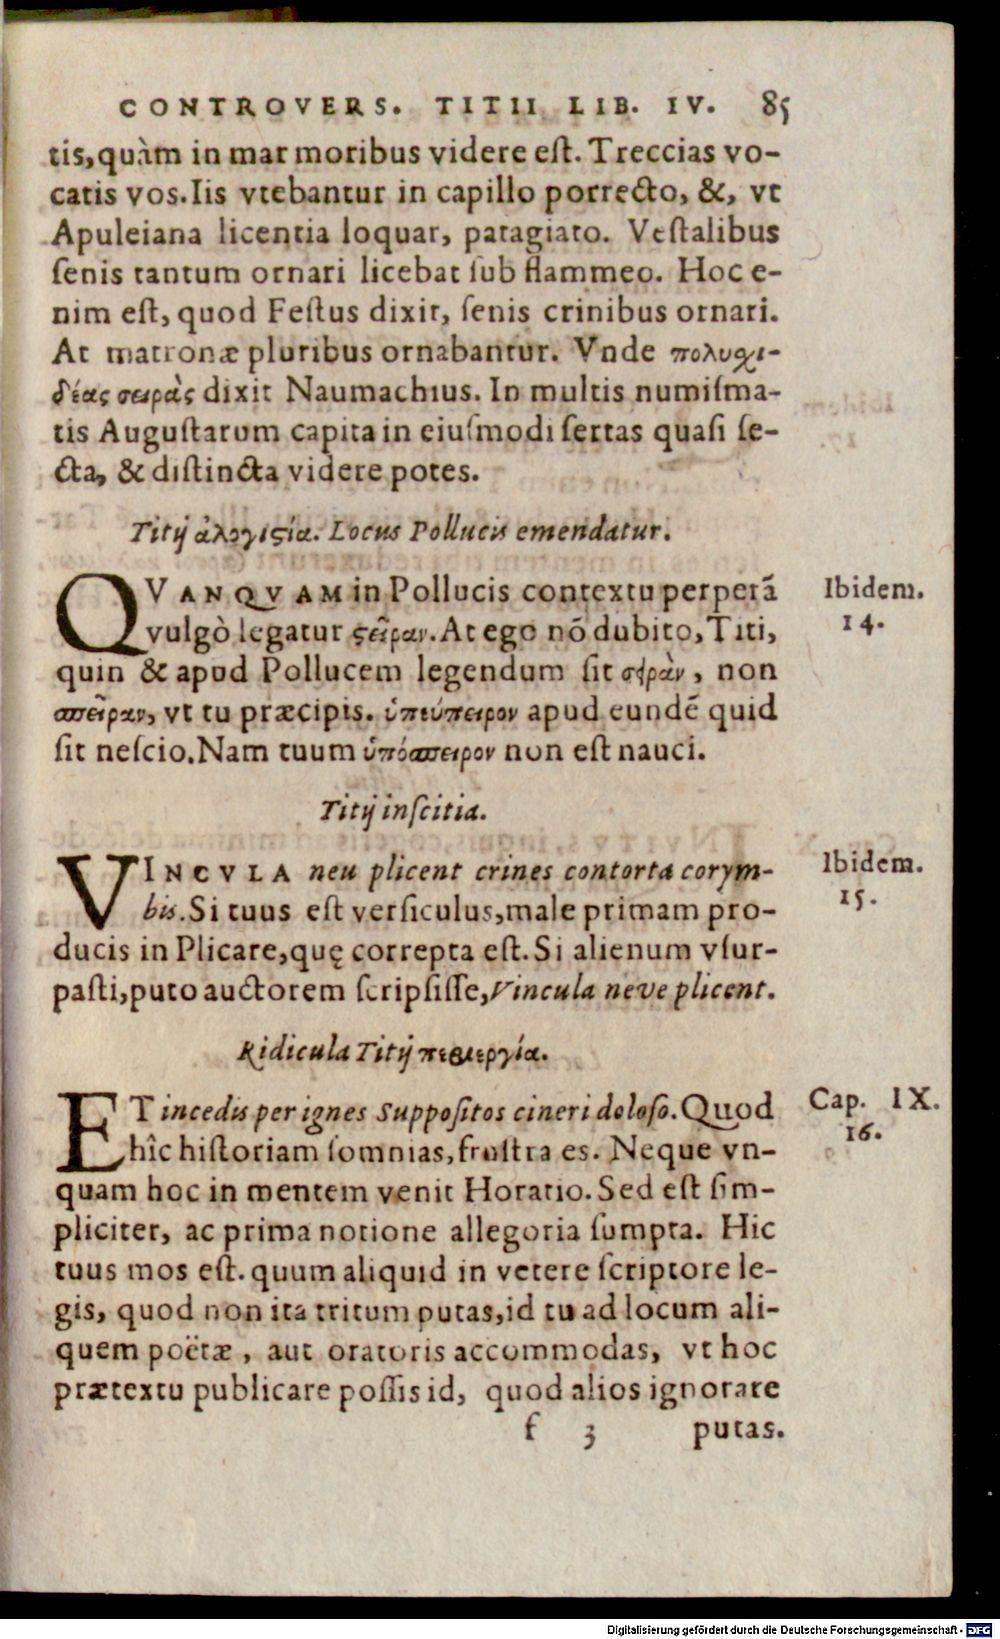 CONTROVERS. TITII LIB. IV. 85
tis, quàm in marmoribus videre eſt. Treccias vo-
catis vos. Iis vtebantur in capillo porrecto, &, vt
Apuleiana licentia loquar, patagiato. Veſtalibus
ſenis tantum ornari licebat ſub flammeo. Hoc e-
nim eſt, quod Feſtus dixit, ſenis crinibus ornari.
At matronæ pluribus ornabantur. Vnde πολυχι-
δέας σειρὰς dixit Naumachius. In multis numiſma-
tis Auguſtarum capita in eiuſmodi ſertas quaſi ſe-
cta, & diſtincta videre potes.
Titij ἀλογιϛία. Locus Pollucis emendatur.
QVANQVAM in Pollucis contextu perperã
vulgò legatur ϛεῖραν. At ego nõ dubito, Titi,
quin & apud Pollucem legendum ſit σειρὰν, non
σπεῖραν, vt tu præcipis. ὑπεύπειρον apud eundẽ quid
ſit neſcio. Nam tuum ὑπόσπειρον non eſt nauci.
Titij inſcitia.
VINCVLA neu plicent crines contorta corym-
bis. Si tuus eſt verſiculus, male primam pro-
ducis in Plicare, quę correpta eſt. Si alienum vſur-
paſti, puto auctorem ſcripſiſſe, Vincula neve plicent.
Ridicula Titij περιεργία.
ET incedis per ignes Suppoſitos cineri doloſo. Quod
hîc hiſtoriam ſomnias, fruſtra es. Neque vn-
quam hoc in mentem venit Horatio. Sed eſt ſim-
pliciter, ac prima notione allegoria ſumpta. Hic
tuus mos eſt. quum aliquid in vetere ſcriptore le-
gis, quod non ita tritum putas, id tu ad locum ali-
quem poëtæ, aut oratoris accommodas, vt hoc
prætextu publicare poſſis id, quod alios ignorare
f 3 putas.
Ibidem.
14.
Ibidem.
15.
Cap. IX.
16.
Digitalisierung gefördert durch die Deutsche Forschungsgemeinschaft - DFG